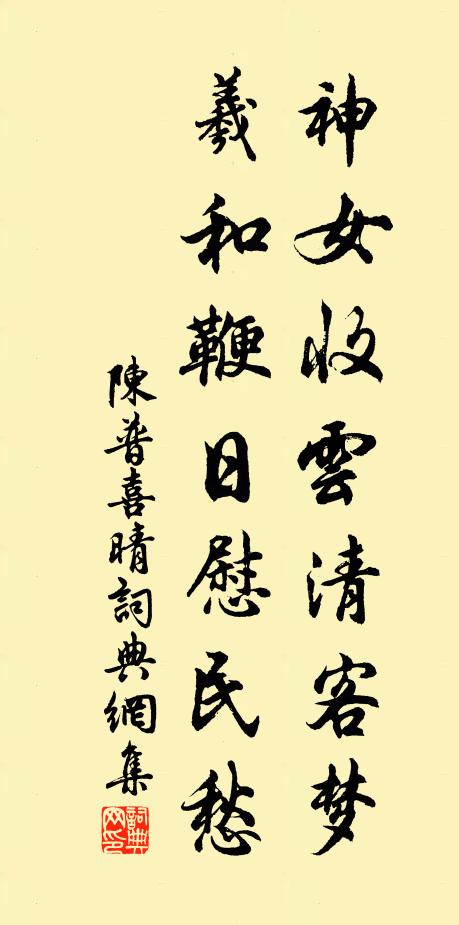 神女收雲清客梦
羲和鞭日慰民愁
陳普喜晴詞典網集
詞典网印